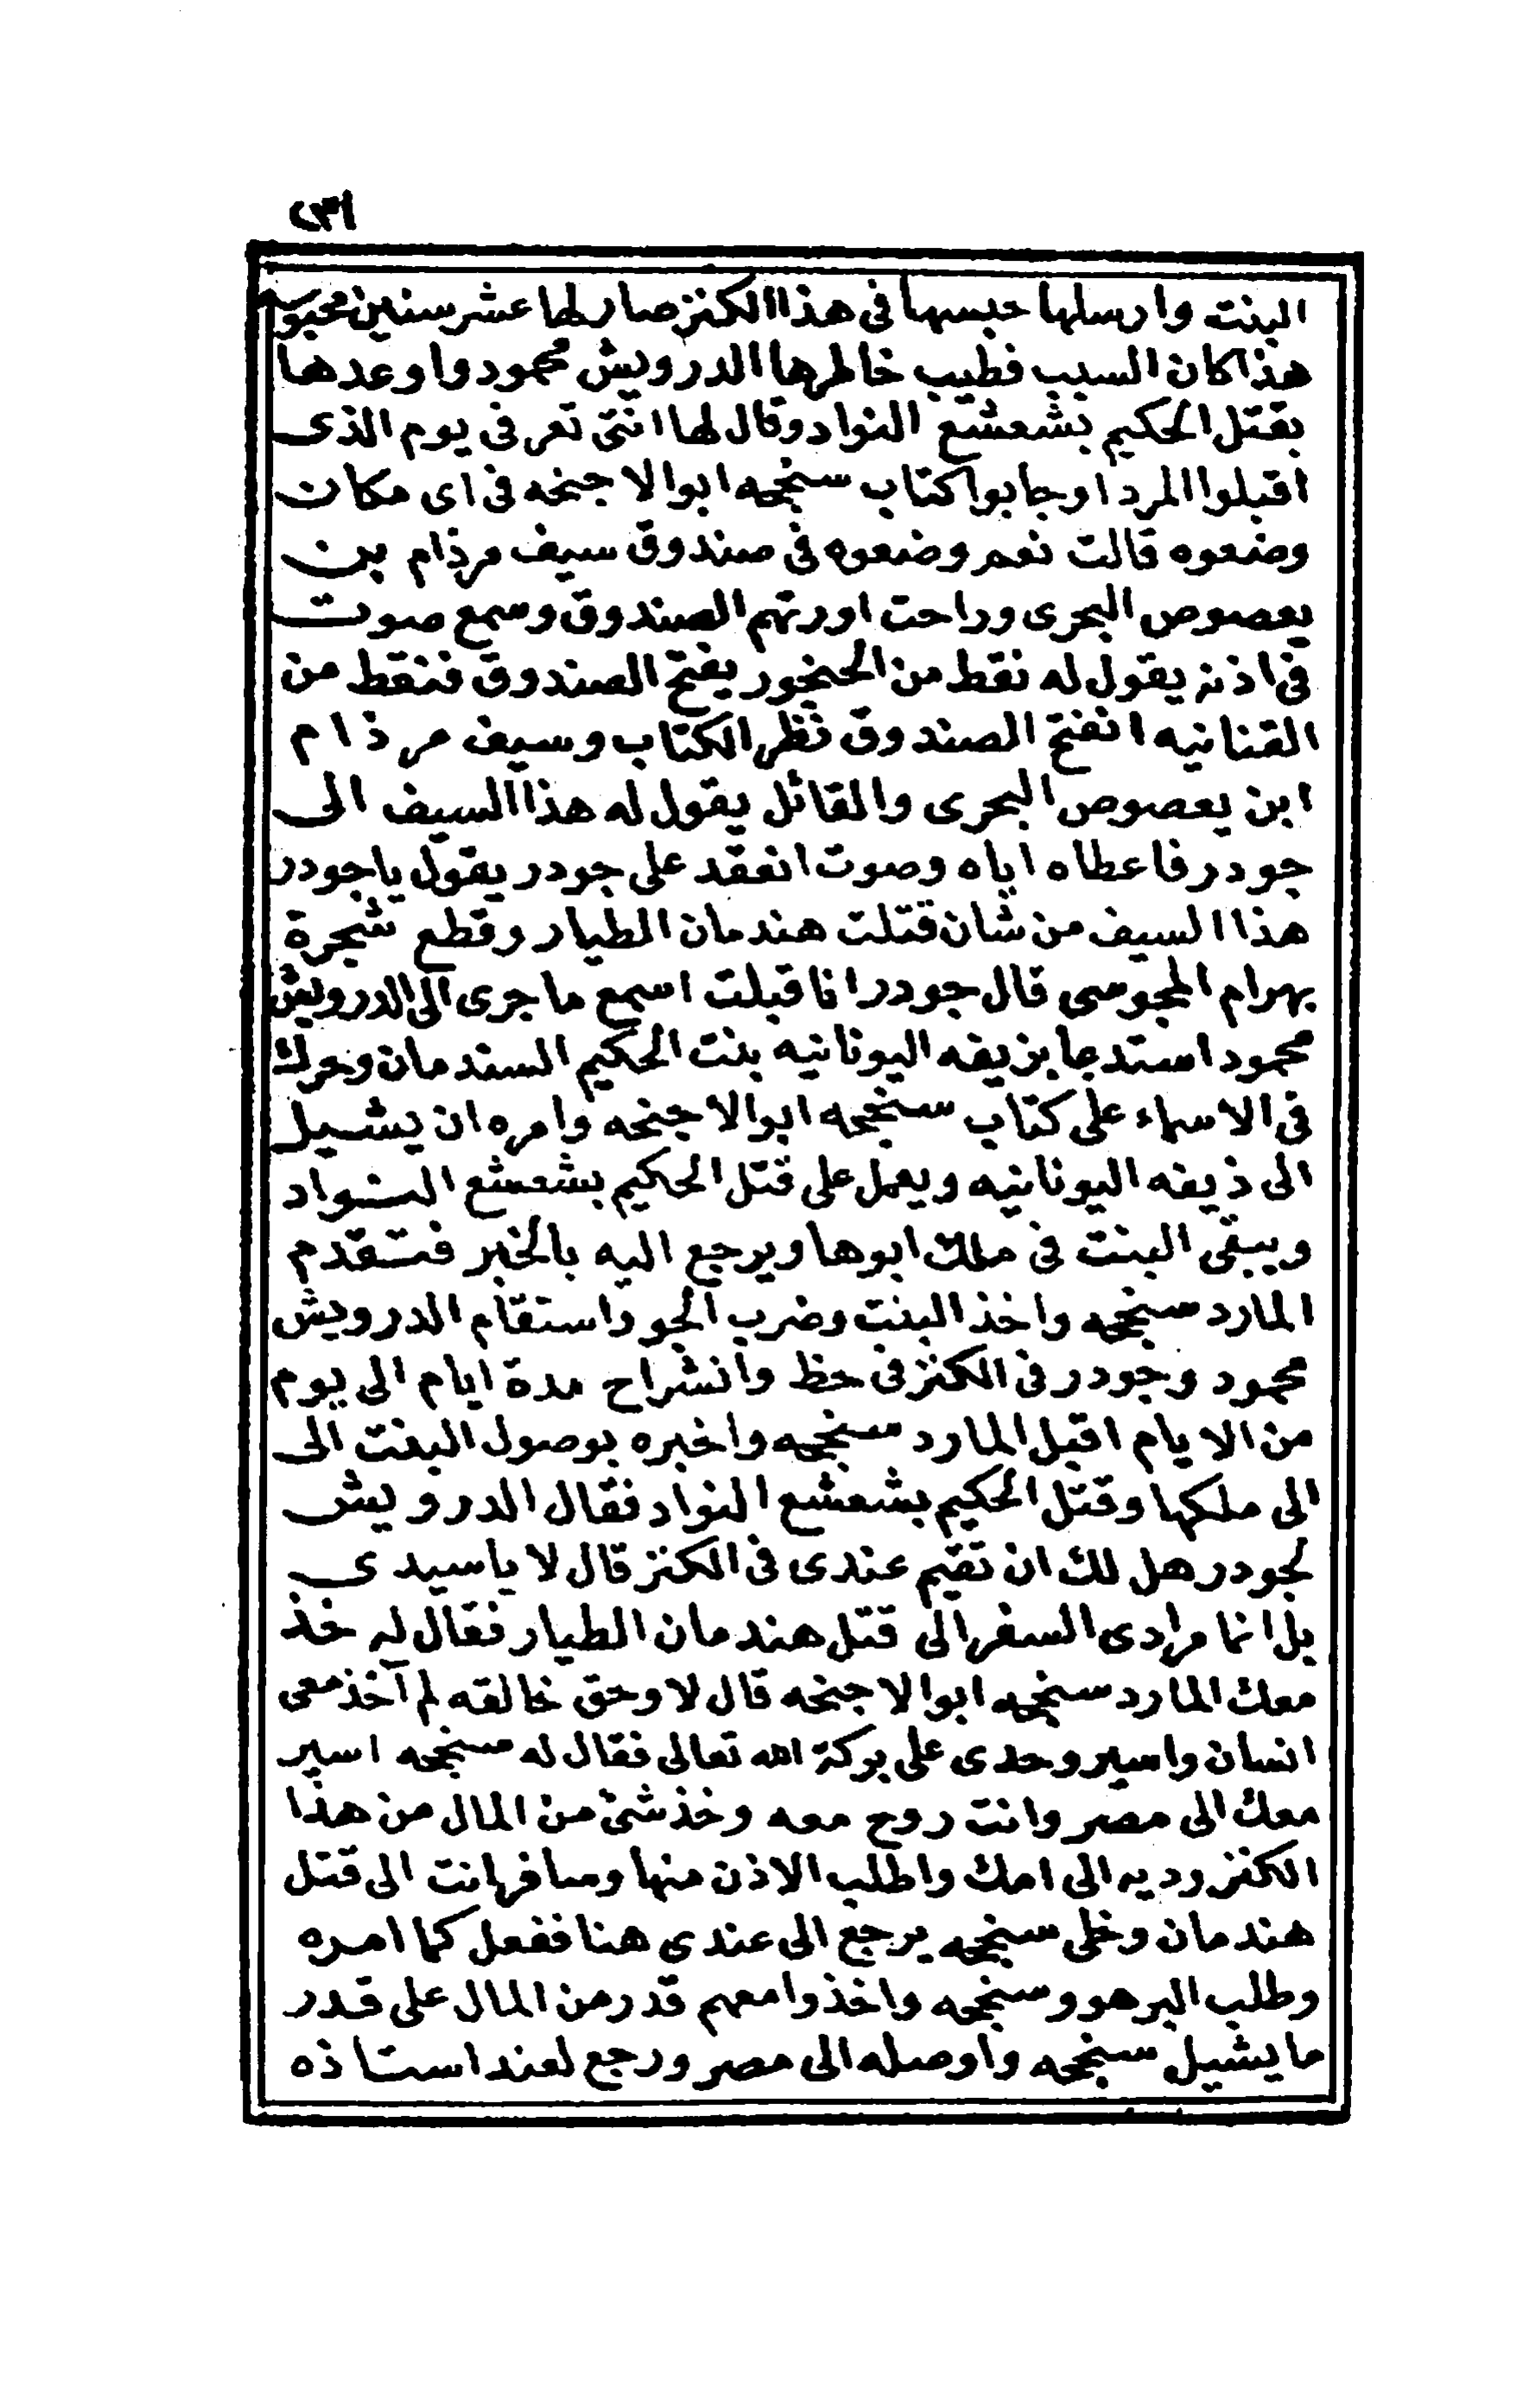 البنت وارسلها حبسها فى هذا الكنز صار لها عشر سنين محبوسه
هذا كان السبب فطيب خاطرها الدرويش محمود واوعدها
بقتل الحكيم بشعشع النواد وقال لها انتى تعرفى يوم الذى
اقبلوا المردا وجابوا كتاب سنجمه ابوالاجنحه فى اى مكان
وضعوه قالت نعم وضعوه فى صندوق سيف مرذام بن
يعصوص البحرى وراحت اورتهم الصندوق وسمع صوت
فى اذنه يقول له نقط من الحنجور يفتح الصندوق فنقط من
القنانيه انفتح الصندوق نظر الكتاب وسيف مرذام
ابن يعصوص البحرى والقائل يقول له هذا السيف الى
جودر فاعطاه اياه وصوت انعقد على جودر يقول ياجودر
هذا السيف من شان قتلت هندمان الطيار وقطع شجرة
بهرام المجوسى قال جودر انا قبلت اسمع ماجرى الى الدرويش
محمود استدعا بزيفه اليونانيه بنت الحكيم السندمان وحرك
فى الاسماء على كتاب سنجمه ابوالاجنحه وامره ان يشيل
الى ذيفه اليونانيه ويعمل على قتل الحكيم بشعشع النواد
ويبقى البنت فى ملك ابوها ويرجع اليه بالخبر فتقدم
المارد سنجمه واخذ البنت وضرب الجو واستقام الدرويش
محمود وجودر فى الكنز فى حظ وانشراح مدة ايام الى يوم
من الايام اقبل المارد سنجمه واخبره بوصول البنت الى
الى ملكها وقتل الحكيم بشعشع النواد فقال الدرويش
لجودر هل لك ان تقيم عندى فى الكنز قال لا ياسيدى
بل انما مرادى السفر الى قتل هندمان الطيار فقال له خذ
معك المارد سنجمه ابوالاجنحه قال لا وحق خالقه لم آخذ معى
انسان واسير وحدى على بركة الله تعالى فقال له سنجمه اسير
معك الى مصر وانت روح معه وخذ شئ من المال من هذا
الكنز وديه الى امك واطلب الاذن منها وسافر انت الى قتل
هندمان وخلى سنجمه يرجع الى عندى هنا ففعل كما امره
وطلب البر هو وسنجمه واخذوا معهم قدر من المال على قدر
مايشيل سنجمه واوصله الى مصر ورجع لعند استاذه